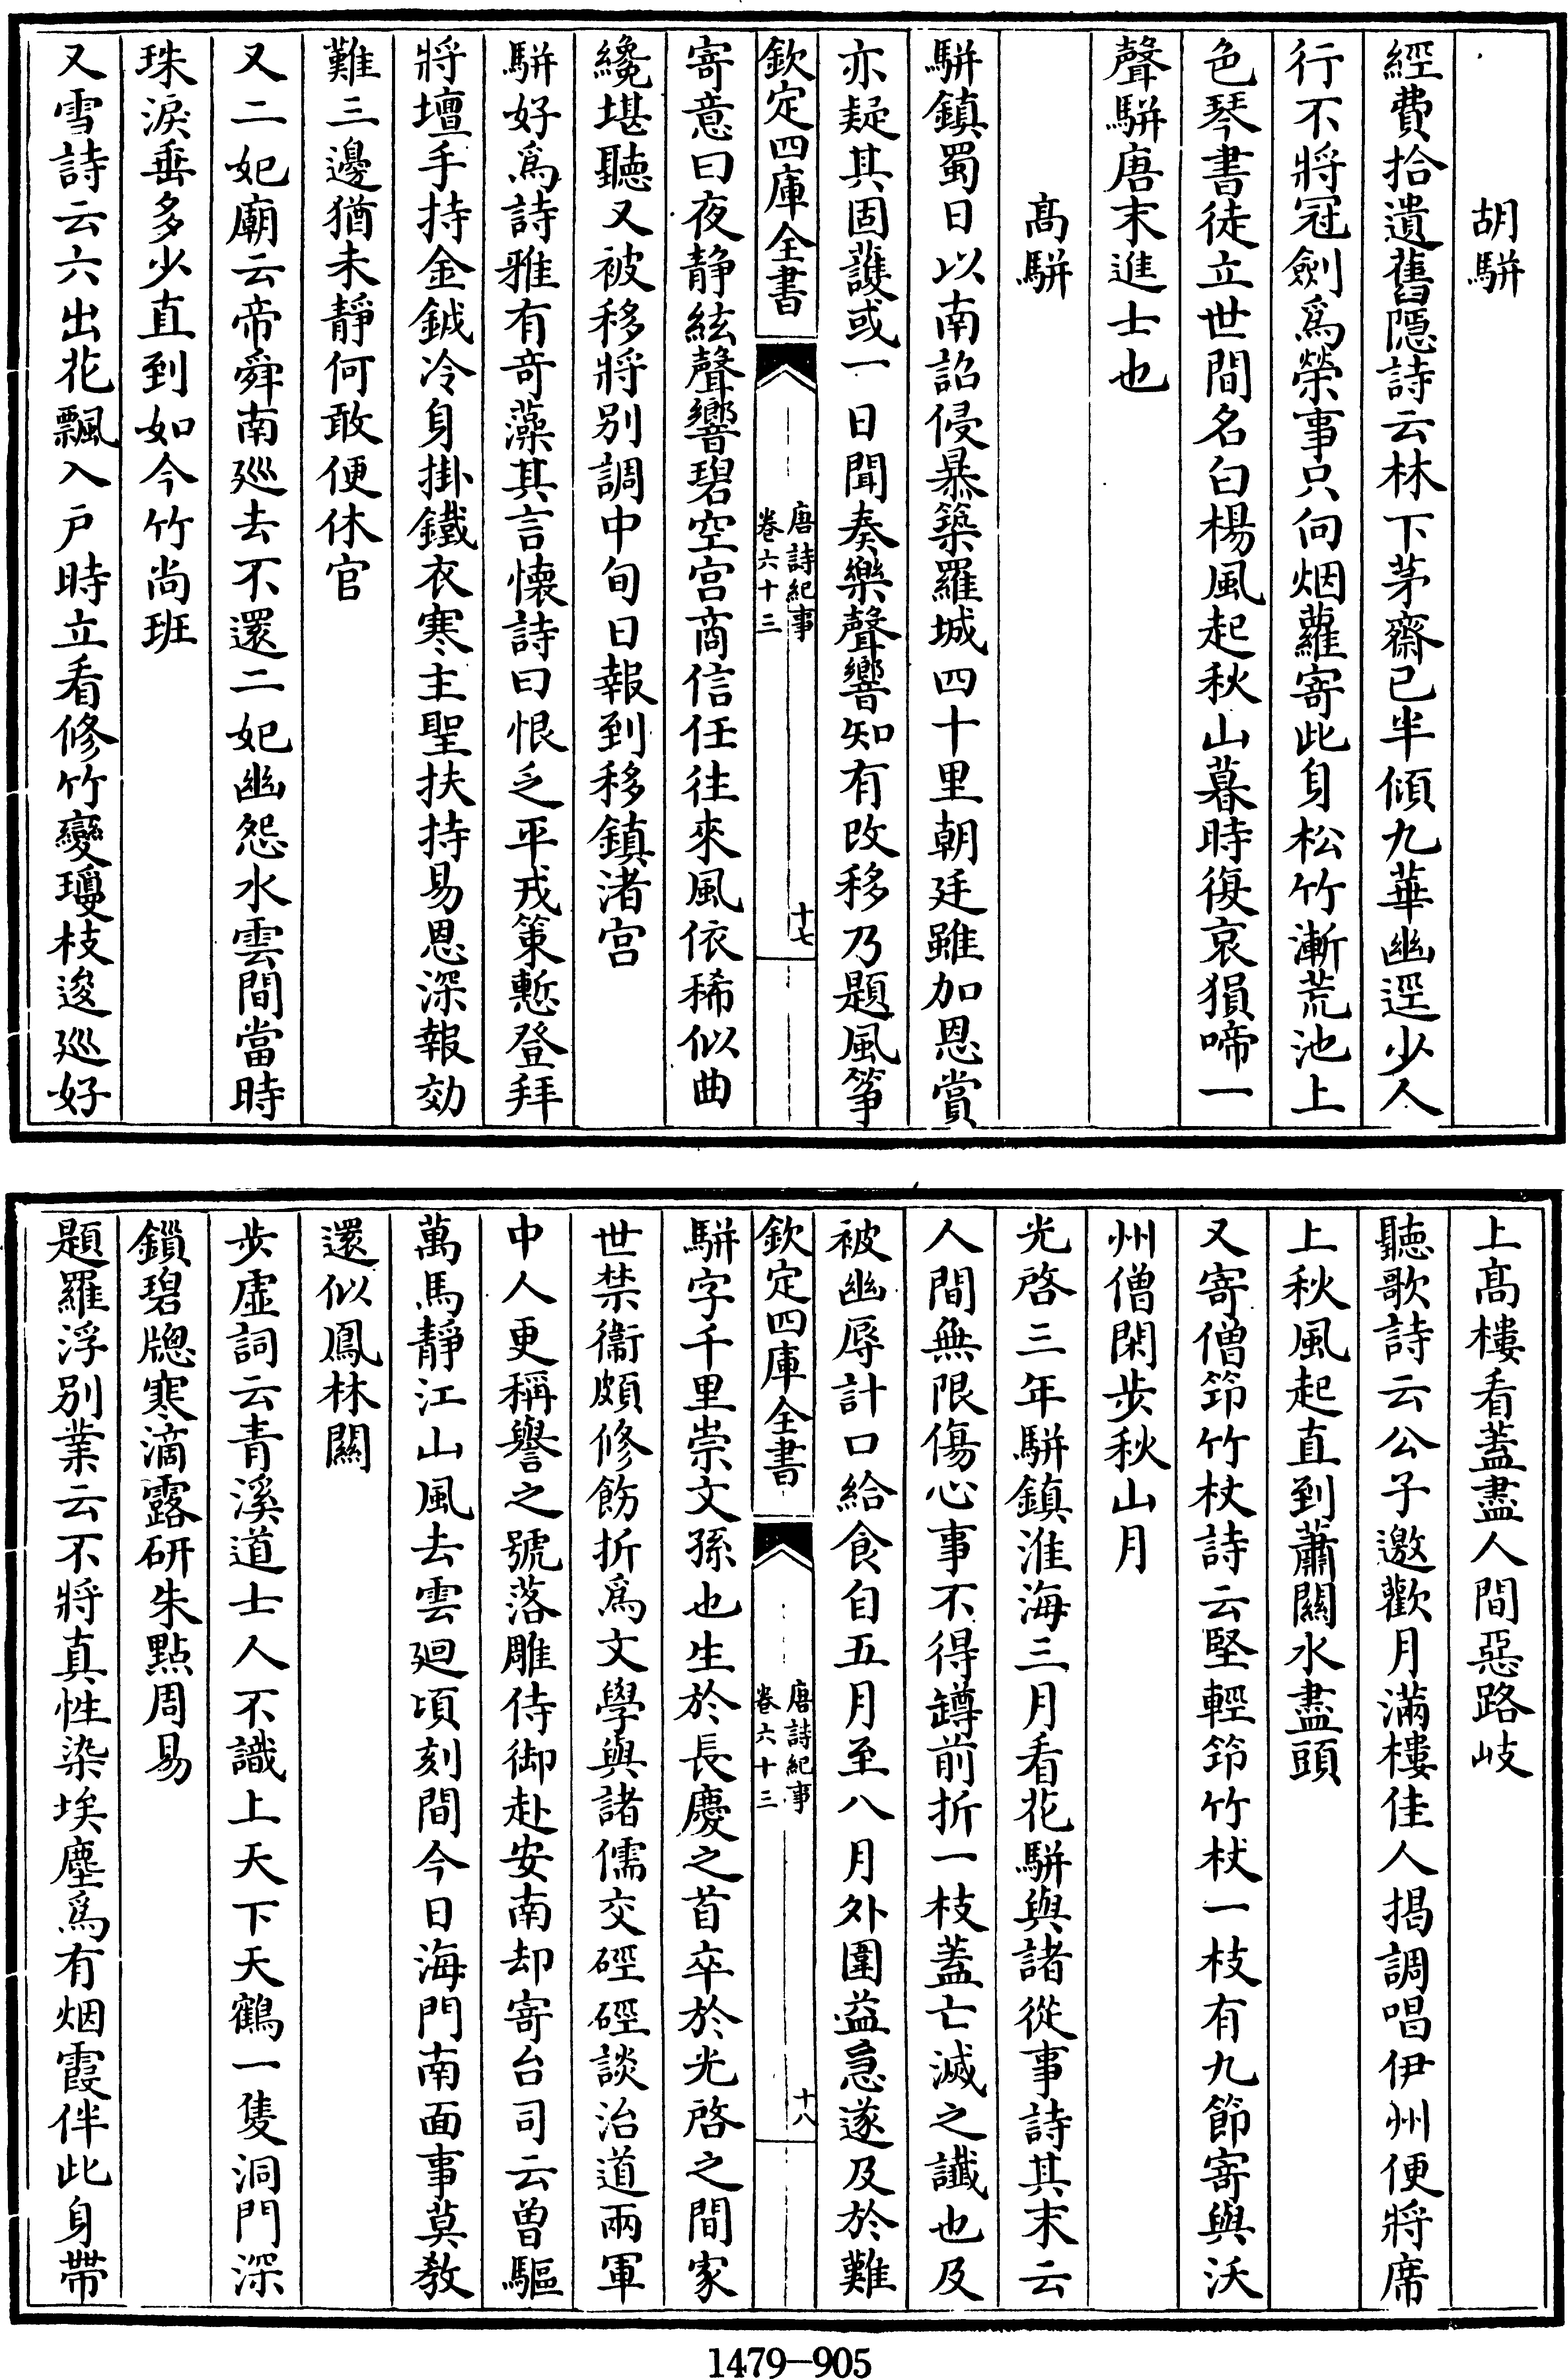 胡駢
經費拾遺舊隱詩云林下茅齋已半傾九華幽逕少人
行不將冠劍爲榮事只向烟蘿寄此身松竹漸荒池上
色琴書徒立世間名白楊風起秋山暮時復哀猿啼一
聲駢唐末進士也
高駢
駢鎮蜀日以南詔侵暴築羅城四十里朝廷雖加恩賞
亦疑其固護或一日聞奏樂聲響知有改移乃題風箏
欽定四庫全書
唐詩紀事
卷六十三
十七
寄意曰夜静絃聲響碧空宫商信任往來風依稀似曲
纔堪聽又被移將別調中旬日報到移鎮渚宫
駢好爲詩雅有竒藻其言懐詩曰恨乏平戎策慙登拜
將壇手持金鉞冷身掛鐵衣寒主聖扶持易恩深報効
難三邊猶未靜何敢便休官
又二妃廟云帝舜南廵去不還二妃幽怨水雲間當時
珠淚垂多少直到如今竹尚班
又雪詩云六出花飄入戶時立看修竹變瓊枝逡廵好
上髙樓看蓋盡人間惡路岐
聽歌詩云公子邀歡月滿樓佳人揭調唱伊州便將席
上秋風起直到蕭關水盡頭
又寄僧筇竹杖詩云堅輕筇竹杖一枝有九節寄與沃
州僧閑步秋山月
光啓三年駢鎮淮海三月看花駢與諸從事詩其末云
人間無限傷心事不得罇前折一枝蓋亡滅之讖也及
被幽辱計口給食自五月至八月外圍益急遂及於難
欽定四庫全書
唐詩紀事
卷六十三
十八
駢字千里崇文孫也生於長慶之首卒於光啓之間家
世禁衞頗修飭折爲文學與諸儒交硜硜談治道兩軍
中人更稱譽之號落雕侍御赴安南却寄台司云曾驅
萬馬靜江山風去雲廻頃刻間今日海門南面事莫教
還似鳳林關
步虛詞云青溪道士人不識上天下天鶴一隻洞門深
鎖碧牕寒滴露研朱點周易
題羅浮別業云不將真性染埃塵爲有烟霞伴此身帶
1479—905